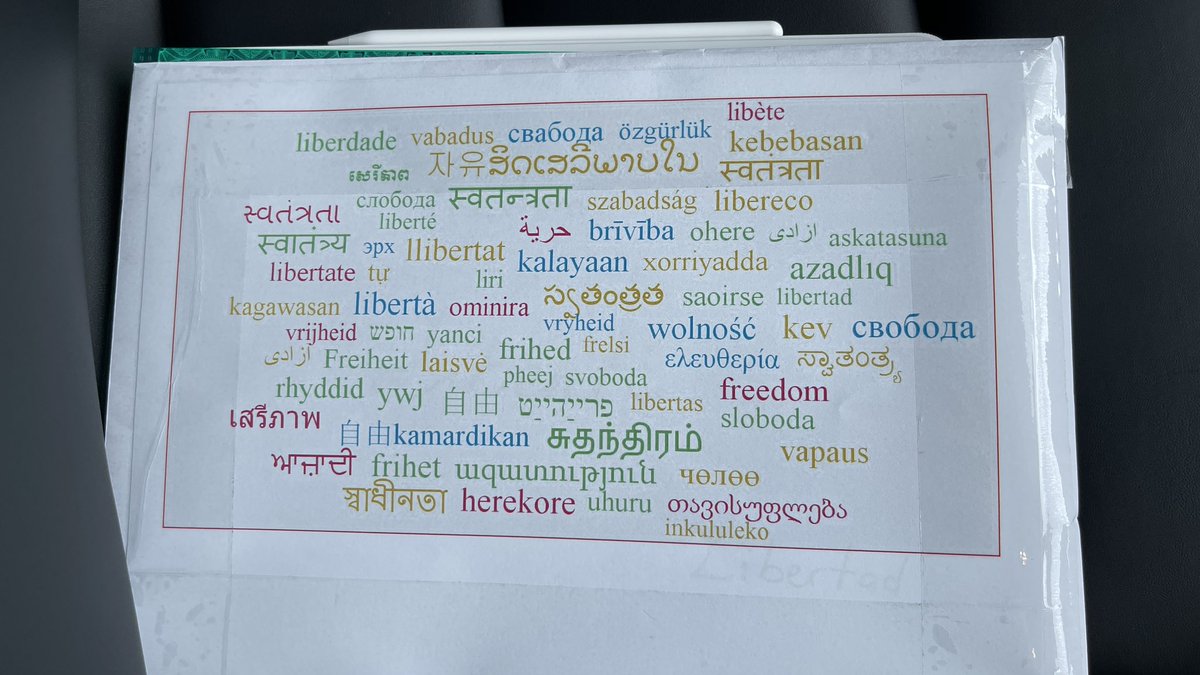 libète
liberdade vabadus свабода özgürlük kebebasan
សេរីភាព 자유ສິດເສລີພາບໃນ स्वतंत्रता
слобода स्वतन्त्रता szabadság libereco
સ્વતંત્રતા liberté حرية brīvība ohere ازادی askatasuna
स्वातंत्र्य эрх llibertat kalayaan xorriyadda azadlıq
libertate tự liri
kagawasan libertà ominira ಸ್ವತಂತ್ರತ saoirse libertad
vrijheid חופש yanci vryheid wolność kev свобода
ازادی Freiheit laisvė frihed frelsi ελευθερία స్వాతంత్ర్య
rhyddid ywj pheej svoboda freedom
自由 פרייַהייַט libertas sloboda
เสรีภาพ 自由kamardikan சுதந்திரம் vapaus
ਆਜ਼ਾਦੀ frihet ազատություն чөлөө
স্বাধীনতা herekore uhuru თავისუფლება
inkululeko
Libertad